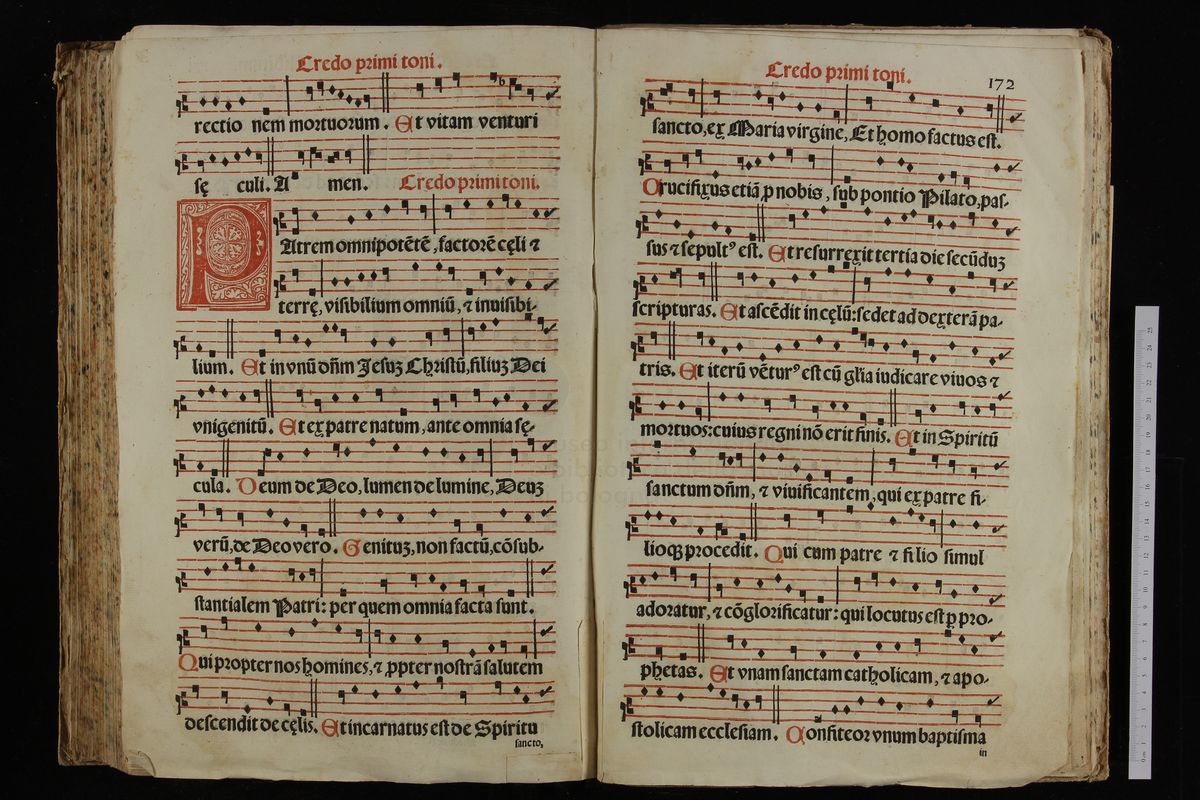 Credo primi toni.
rectio nem mortuorum. Et vitam venturi
sę culi. A men. Credo primi toni.
PAtrem omnipotētē, factorē cęli ⁊
terrę, visibilium omniū, ⁊ inuisibi-
lium. Et in vnū dn̄m Jesuꝫ Christū, filiuꝫ Dei
vnigenitū. Et ex patre natum, ante omnia sę-
cula. Deum de Deo, lumen de lumine, Deuꝫ
verū, de Deo vero. Genituꝫ, non factū, cōsub-
stantialem Patri: per quem omnia facta sunt.
Qui propter nos homines, ⁊ ꝓpter nostrā salutem
descendit de cęlis. Et incarnatus est de Spiritu
sancto,
Credo primi toni.
172
sancto, ex Maria virgine, Et homo factus est.
Crucifixus etiā ꝓ nobis, sub pontio Pilato, pas-
sus ⁊ sepultꝰ est. Et resurrexit tertia die secūduꝫ
scripturas. Et ascēdit in cęlū: sedet ad dexterā pa-
tris. Et iterū vēturꝰ est cū gl̄ia iudicare viuos ⁊
mortuos: cuius regni nō erit finis. Et in Spiritū
sanctum dn̄m, ⁊ viuificantem, qui ex patre fi-
lioqꝫ procedit. Qui cum patre ⁊ filio simul
adoratur, ⁊ cōglorificatur: qui locutus est ꝑ pro-
phetas. Et vnam sanctam catholicam, ⁊ apo-
stolicam ecclesiam. Confiteor vnum baptisma
in